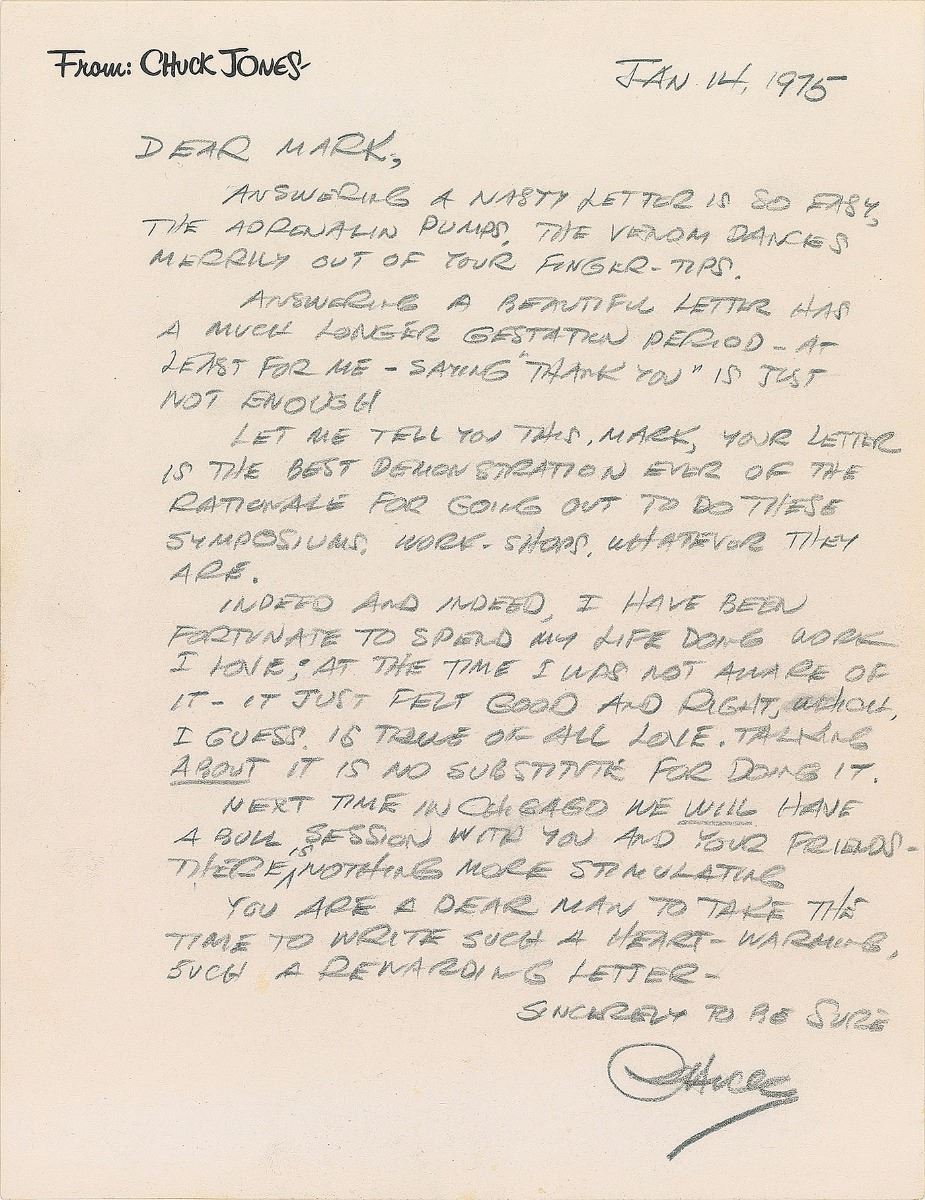 From: CHUCK JONES
JAN 14, 1975
DEAR MARK,
ANSWERING A NASTY LETTER IS SO EASY,
THE ADRENALIN PUMPS, THE VENOM DANCES
MERRILY OUT OF YOUR FINGER-TIPS.
ANSWERING A BEAUTIFUL LETTER HAS
A MUCH LONGER GESTATION PERIOD - AT
LEAST FOR ME - SAYING "THANK YOU" IS JUST
NOT ENOUGH
LET ME TELL YOU THIS, MARK, YOUR LETTER
IS THE BEST DEMONSTRATION EVER OF THE
RATIONALE FOR GOING OUT TO DO THESE
SYMPOSIUMS, WORK-SHOPS, WHATEVER THEY
ARE.
INDEED AND INDEED, I HAVE BEEN
FORTUNATE TO SPEND MY LIFE DOING WORK
I LOVE; AT THE TIME I WAS NOT AWARE OF
IT - IT JUST FELT GOOD AND RIGHT, WHICH,
I GUESS, IS TRUE OF ALL LOVE. TALKING
ABOUT IT IS NO SUBSTITUTE FOR DOING IT.
NEXT TIME IN CHICAGO WE WILL HAVE
A BULL SESSION WITH YOU AND YOUR FRIENDS-
THERE IS NOTHING MORE STIMULATING
YOU ARE A DEAR MAN TO TAKE THE
TIME TO WRITE SUCH A HEART-WARMING,
SUCH A REWARDING LETTER-
SINCERELY TO BE SURE
Chuck